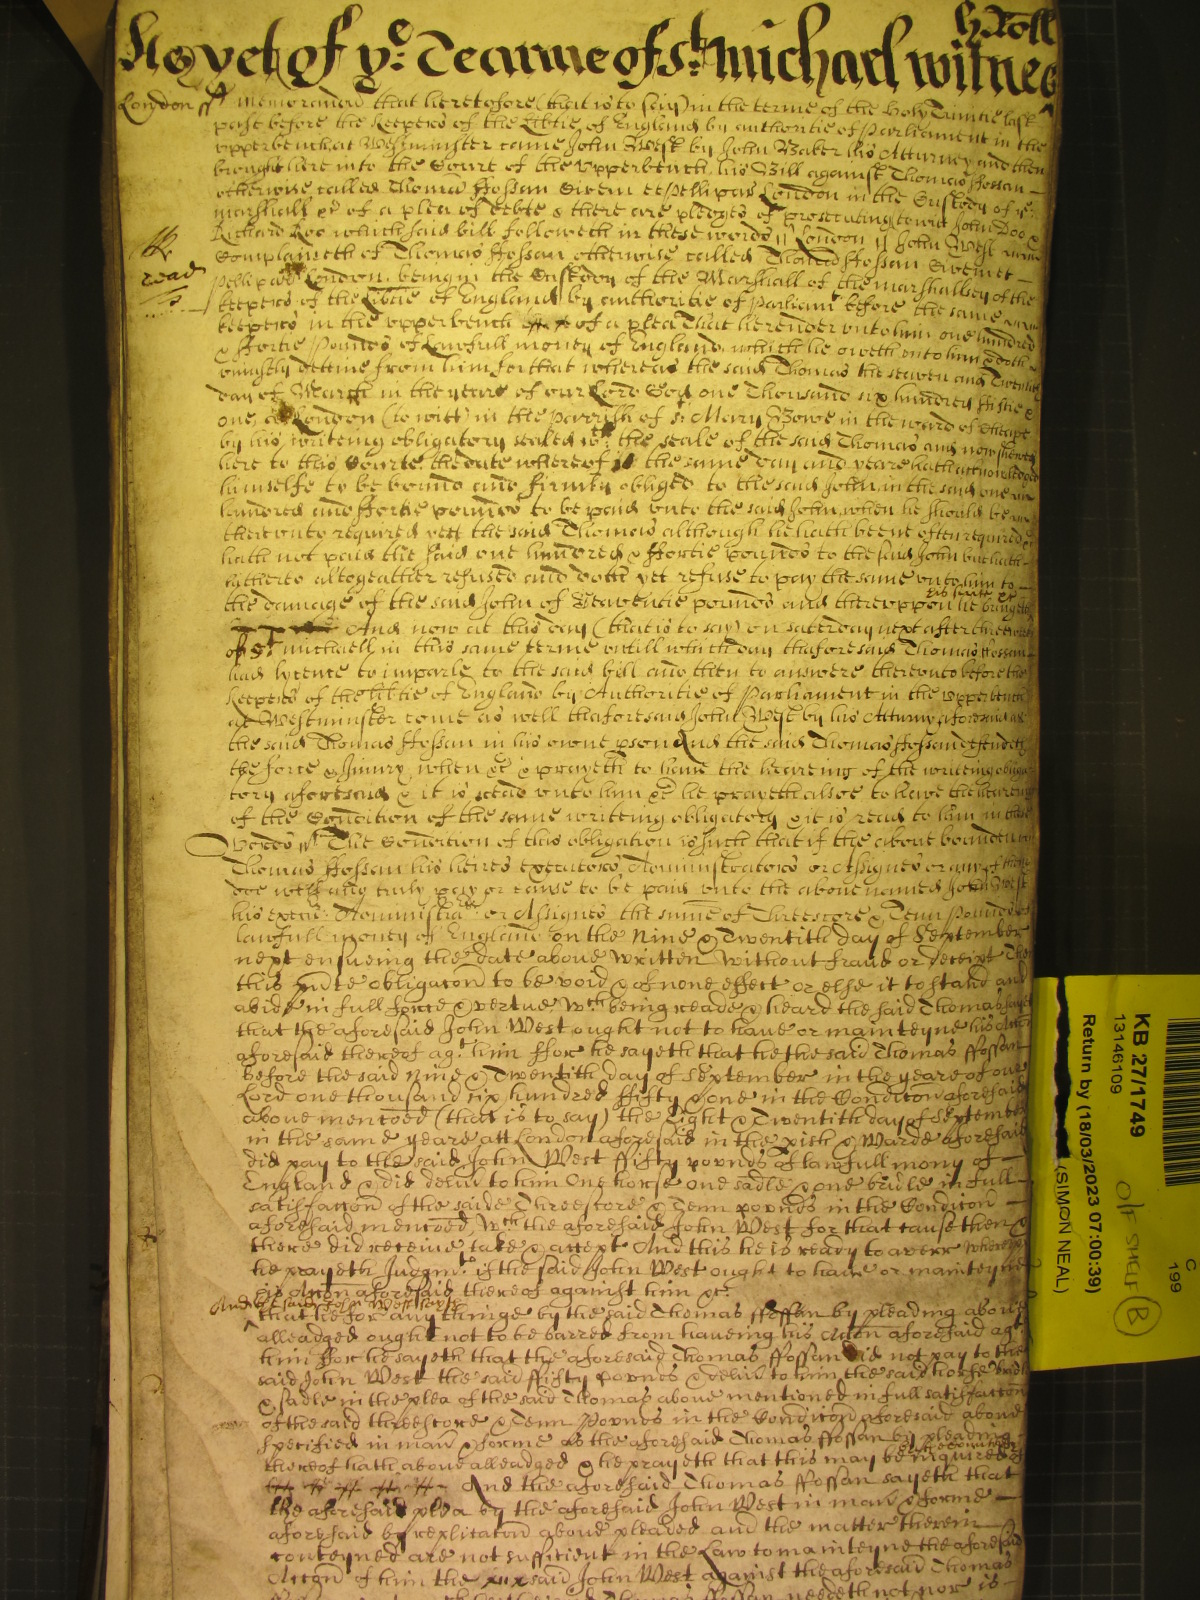 H Roll
As yet of ye: Tearme of st. Michael witnes
London ss Memorand that heretofore (that is to say) in the terme of the Holy Trinitie last
past before the Keepers of the libtie of England by authoritie of Parliament in the
upperbench at Westminster came John West by John Baker his Atturney and then
brought here into the Court of the Upperbench his Bill against Thomas ffossan
otherwise called Thomas ffossan Civem et Pelliparⁱ London in the Custody of ye:
marshall &c of a plea of debte & there are pledges of prosecuting towit John Doe &
Richard Roe which said bill followeth in these words ss London ss John West
Complaineth of Thomas ffossan otherwise called Thomas ffossan Civem et
read
Pellipar London being in the Custody of the Marshall of the marshalsey of the
Keepers of the libtie of England by authoritie of Parliamt before the same
keepers in the upperbench of a plea That he render unto him one hundred
& ffortie Pounds of Lawfull money of England which he oweth unto him & doth
uniustly deteine from him for that whereas the said Thomas the seaven and Twentith
day of March in the yeare of our Lord God one Thousand six hundred fiftie &
one, at London (to witt) in the Parrish of st Mary Bowe in the ward of Cheape
by his writeing obligatory sealed wth: the seale of the said Thomas and now shewed
here to this Courte the date whereof is the same day and yeare hath acknowledged
himselfe to be bound and firmly obliged to the said John in the said one
hundred and ffortie pounds to be paid unto the said John when he should be
thereunto required yett the said Thomas although he hath beene often required &c
hath not paid the said one hundred & ffortie pounds to the said John but hath
hitherto altogeather refused and doth yet refuse to pay the same unto him to
the damage of the said John of Seaventie pounds and thereuppon he bringeth
his suite &c
And now at this day (that is to say) on saturday next after three weekes
of st. michaell in this same terme untill which day thaforesaid Thomas ffossan
had lycence to imparle to the said bill and then to answere thereunto before the
Keepers of the libtie of England by Authoritie of Parliament in the upperbench
at Westminster come as well thaforesaid John West by his Atturny aforesaid as
the said Thomas ffossan in his owne pson And the said Thomas ffossan defendeth
the force & Iniury when &c & prayeth to have the heareing of the writeing obliga
tory aforesaid & it is read unto him &c he prayeth alsoe to have the heareing
of the Condition of the same writeing obligatory & it is read to him in these
words ss The Condition of this obligation is such that if the above bounden
Thomas ffossan his heires executors Administrators or Assignes or any of them
doe well and truly pay or cause to be paid unto the above named John West
his execut. Administra. or Assignes the sume of Threescore & Tenn Pounds of
lawfull money of England on the Nine & Twentith day of September
next ensueing the date above written without fraud or deceipt Then
this psnte obligacon to be void & of none effect or else it to stand and
abide in full force & vertue, Wch being reade & heard the said Thomas sayeth
that the aforesaid John West ought not to have or mainteyne his Accon
aforesaid thereof agt. him ffor he sayeth that he the said Thomas ffossan
before the said Nine & Twentith day of September in the yeare of our
Lord one thousand six hundred ffifty & one in the Condicon aforesaid
above menconed (that is to say) the Eight & Twentith day of September
in the same yeare att London aforesaid in the pish & Warde aforesaid
did pay to the said John West ffifty pounds of lawfull mony of
England & did deliv to him One horse one sadle & one bridle in full
satisfaccon of the saide Threescore & Tenn pounds in the Condicon
aforesaid menconed, Wch the aforesaid John West for that cause then &
there did receive take & accept And this he is ready to averr whereupon
he prayeth Judgmt. if the said John West ought to have or mainteyne
his Accon aforesaid thereof against him &c.
And the said John West sayth
that he for any thinge by the said Thomas ffossan by pleading above
alleadged ought not to be barred from haveing his Accon aforesaid agt.
him ffor he sayeth that the aforesaid Thomas ffossan did not pay to the
said John West the said ffifty pounds & deliv to him the said horse bridle
& sadle in the plea of the said Thomas above mentioned in full satisfaccon
of the said threescore & Tenn Pounds in the Condicon aforesaid above
specified in mann & forme as the aforesaid Thomas ffossan by pleading
thereof hath above alleadged & he prayeth that this may be inquired of
by the Country &c
And the aforesaid Thomas ffossan sayeth that
the aforesaid plea by the aforesaid John West in mann & forme
aforesaid by replicacon above pleaded and the matter therein
conteyned are not sufficient in the Law to mainteyne the aforesaid
Accon of him the said John West against the aforesaid Thomas
ffossan needeth not nor is
KB 27/1749
13146109
Return by (18/03/2023 07:00:39)
(SIMON NEAL)
C
199
O/F SHELF B